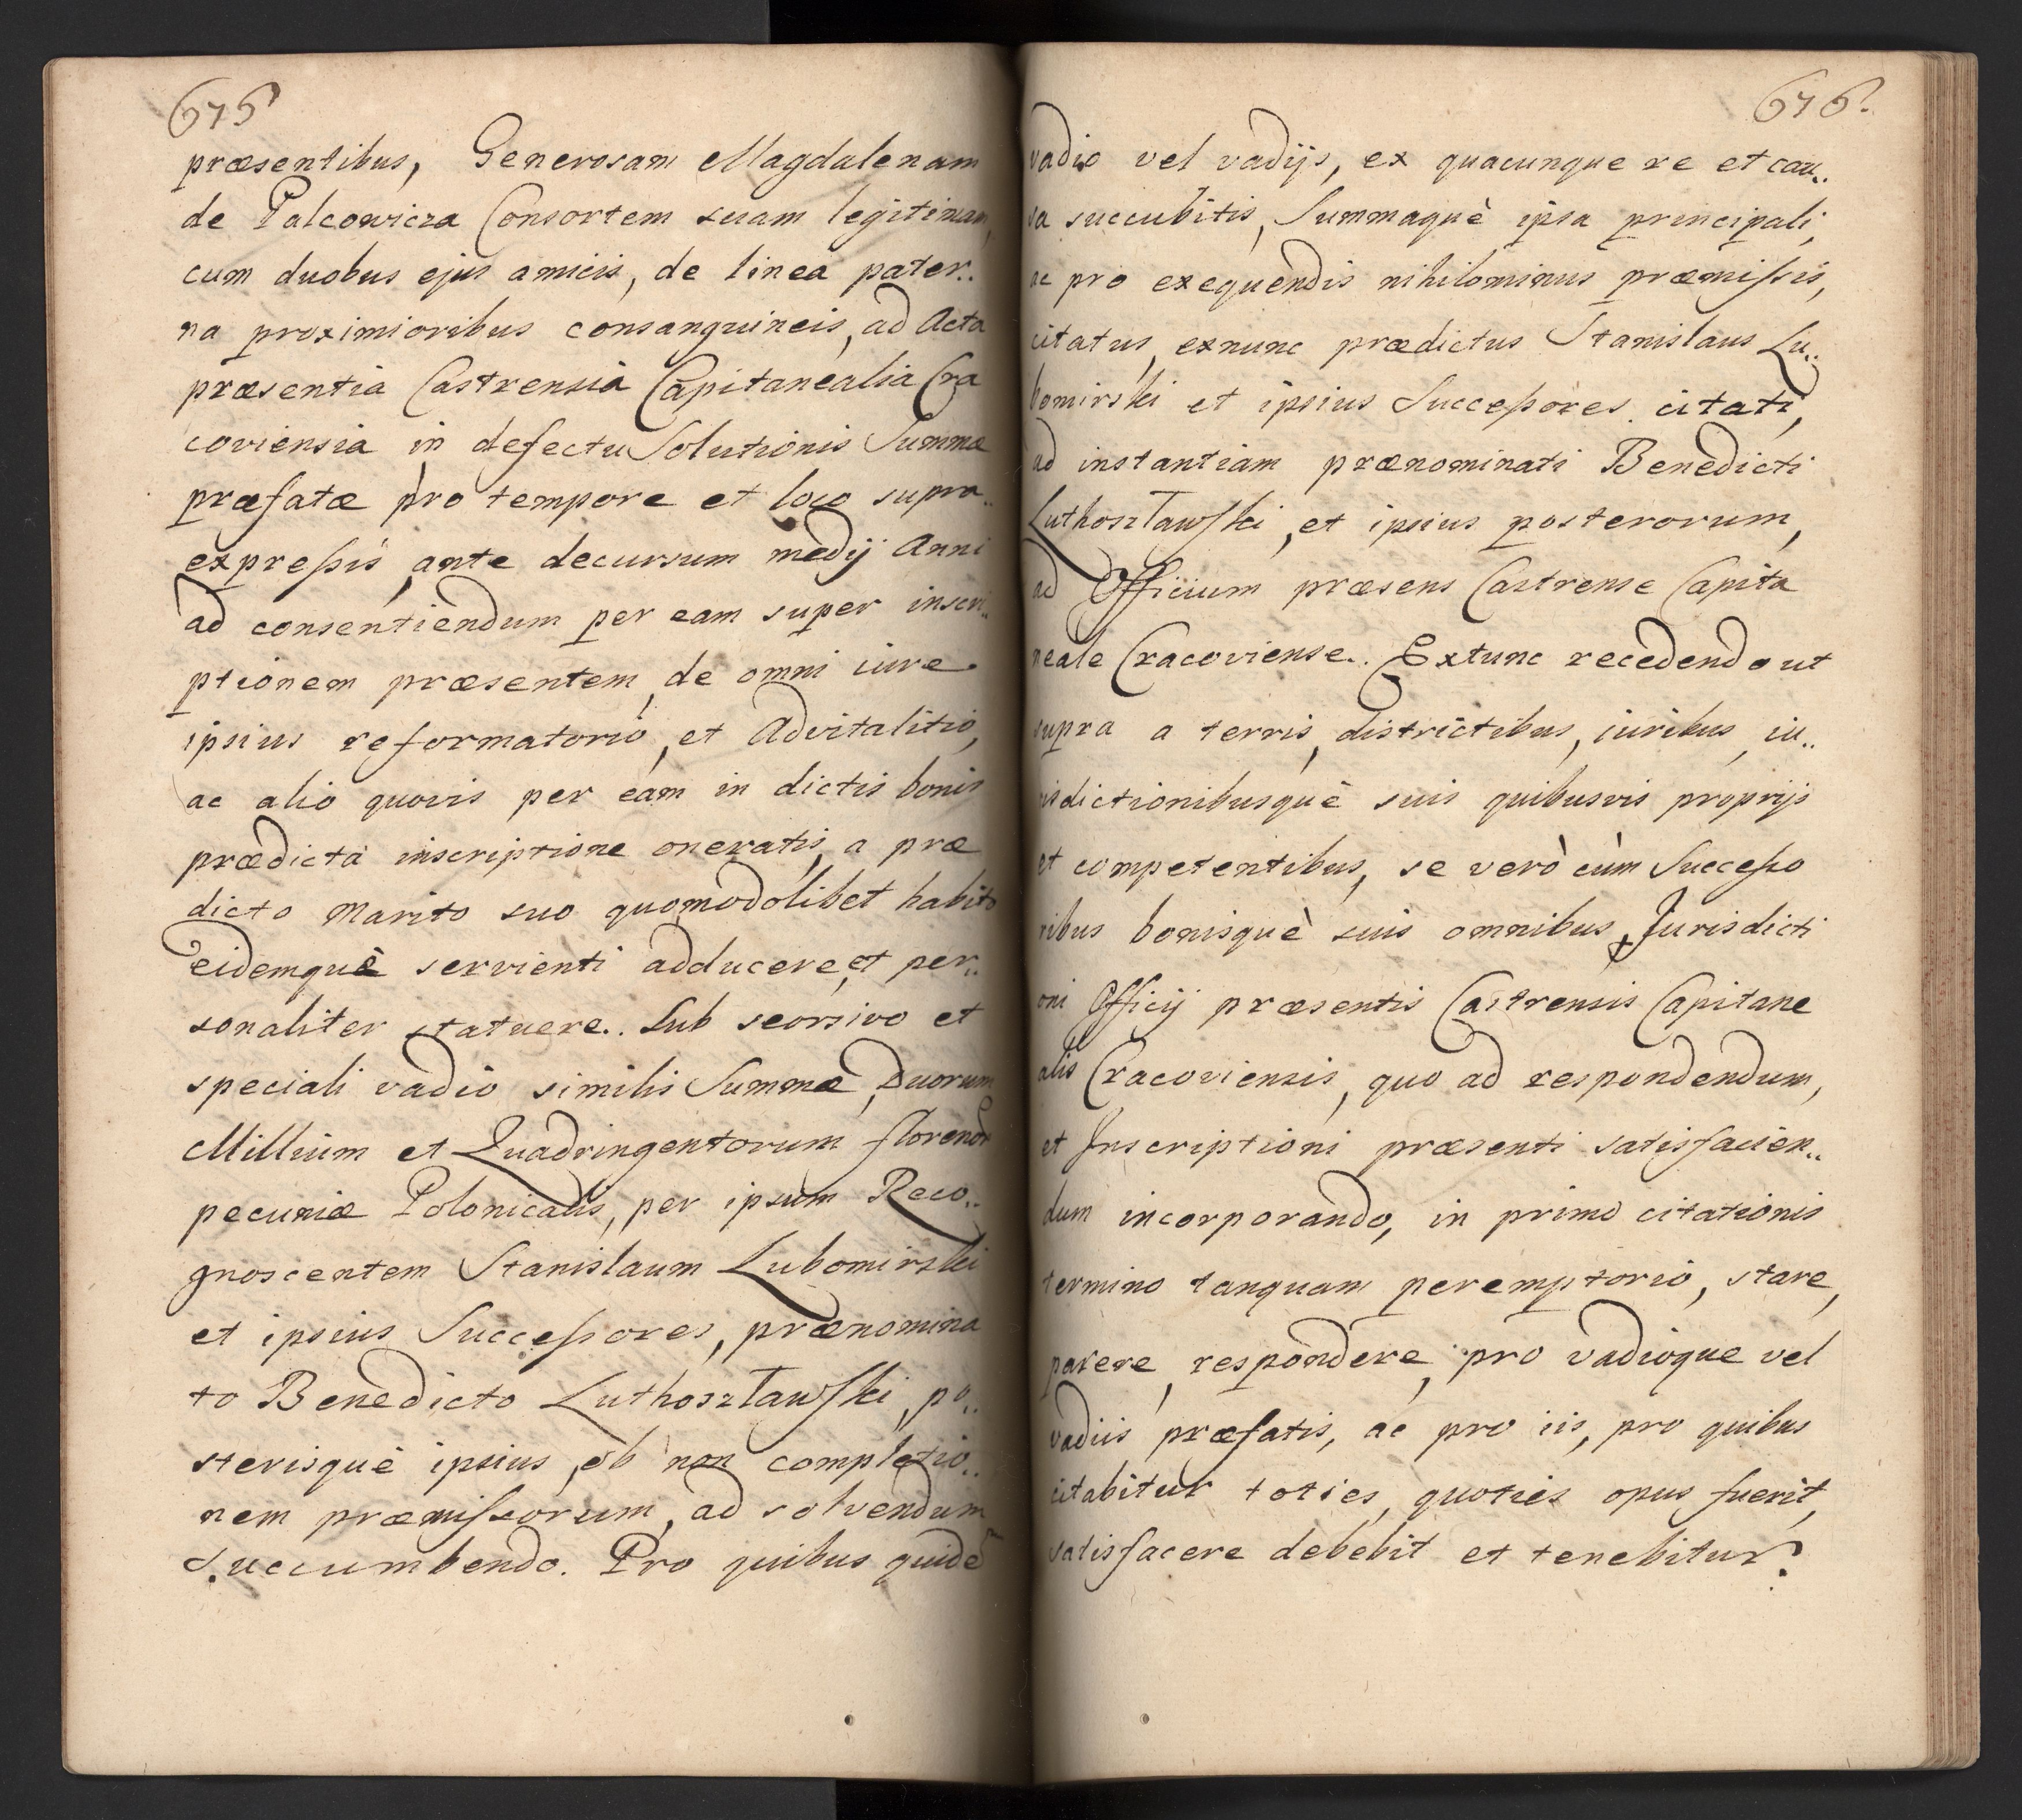 675
præsentibus, Generosam Magdalenam
de Palcowicza Consortem suam legitimam,
cum duobus ejus amicis, de linea pater..
na proximioribus consanguineis, ad Acta
præsentia Castrensia Capitanealia Cra
coviensia in defectu Solutionis Summæ
præfatæ pro tempore et loco supra..
expressis, ante decursum medij Anni
ad consentiendum per eam super inscri..
ptionem præsentem, de omni iure
ipsius reformatorio, et Advitalitio,
ac alio quovis per eam in dictis bonis
prædicta inscriptione oneratis, a præ
dicto Marito suo quomodolibet habito
eidemquè servienti adducere, et per..
sonaliter statuere.. Sub seorsivo et
speciali vadio similis Summæ, Duorum
Millium et Quadringentorum florenor
pecuniæ Polonicalis, per ipsum Reco..
gnoscentem Stanislaum Lubomirski
et ipsius Successores, prænomina
to Benedicto Luthoszławski, po..
sterisquè ipsius, ob non completio..
nem præmissorum, ad solvendum
succumbendo. Pro quibus quidē
676.
vadio vel vadijs, ex quacunque re et cau..
sa succubitis, Summaquè ipsa principali,
ac pro exequendis nihilominus præmissis,
citatus, exnunc prædictus Stanislaus Lu..
bomirski et ipsius Successores citati,
ad instantiam prænominati Benedicti
Luthoszławski, et ipsius posterorum,
ad Officium præsens Castrense Capita
neale Cracoviense.. Extunc recedendo ut
supra a terris, districtibus, iuribus, iu..
risdictionibusquè suis quibusvis proprijs
et competentibus, se verò cùm Successo
ribus bonisquè suis omnibus, Jurisdicti
oni Officij præsentis Castrensis Capitane
alis Cracoviensis, quo ad respondendum,
et Inscriptioni præsenti satisfacien..
dum incorporando, in primo citationis
termino tanquam peremptorio, stare,
parere, respondere, pro vadioque vel
vadiis præfatis, ac pro iis, pro quibus
citabitur toties, quoties opus fuerit,
satisfacere debebit et tenebitur.